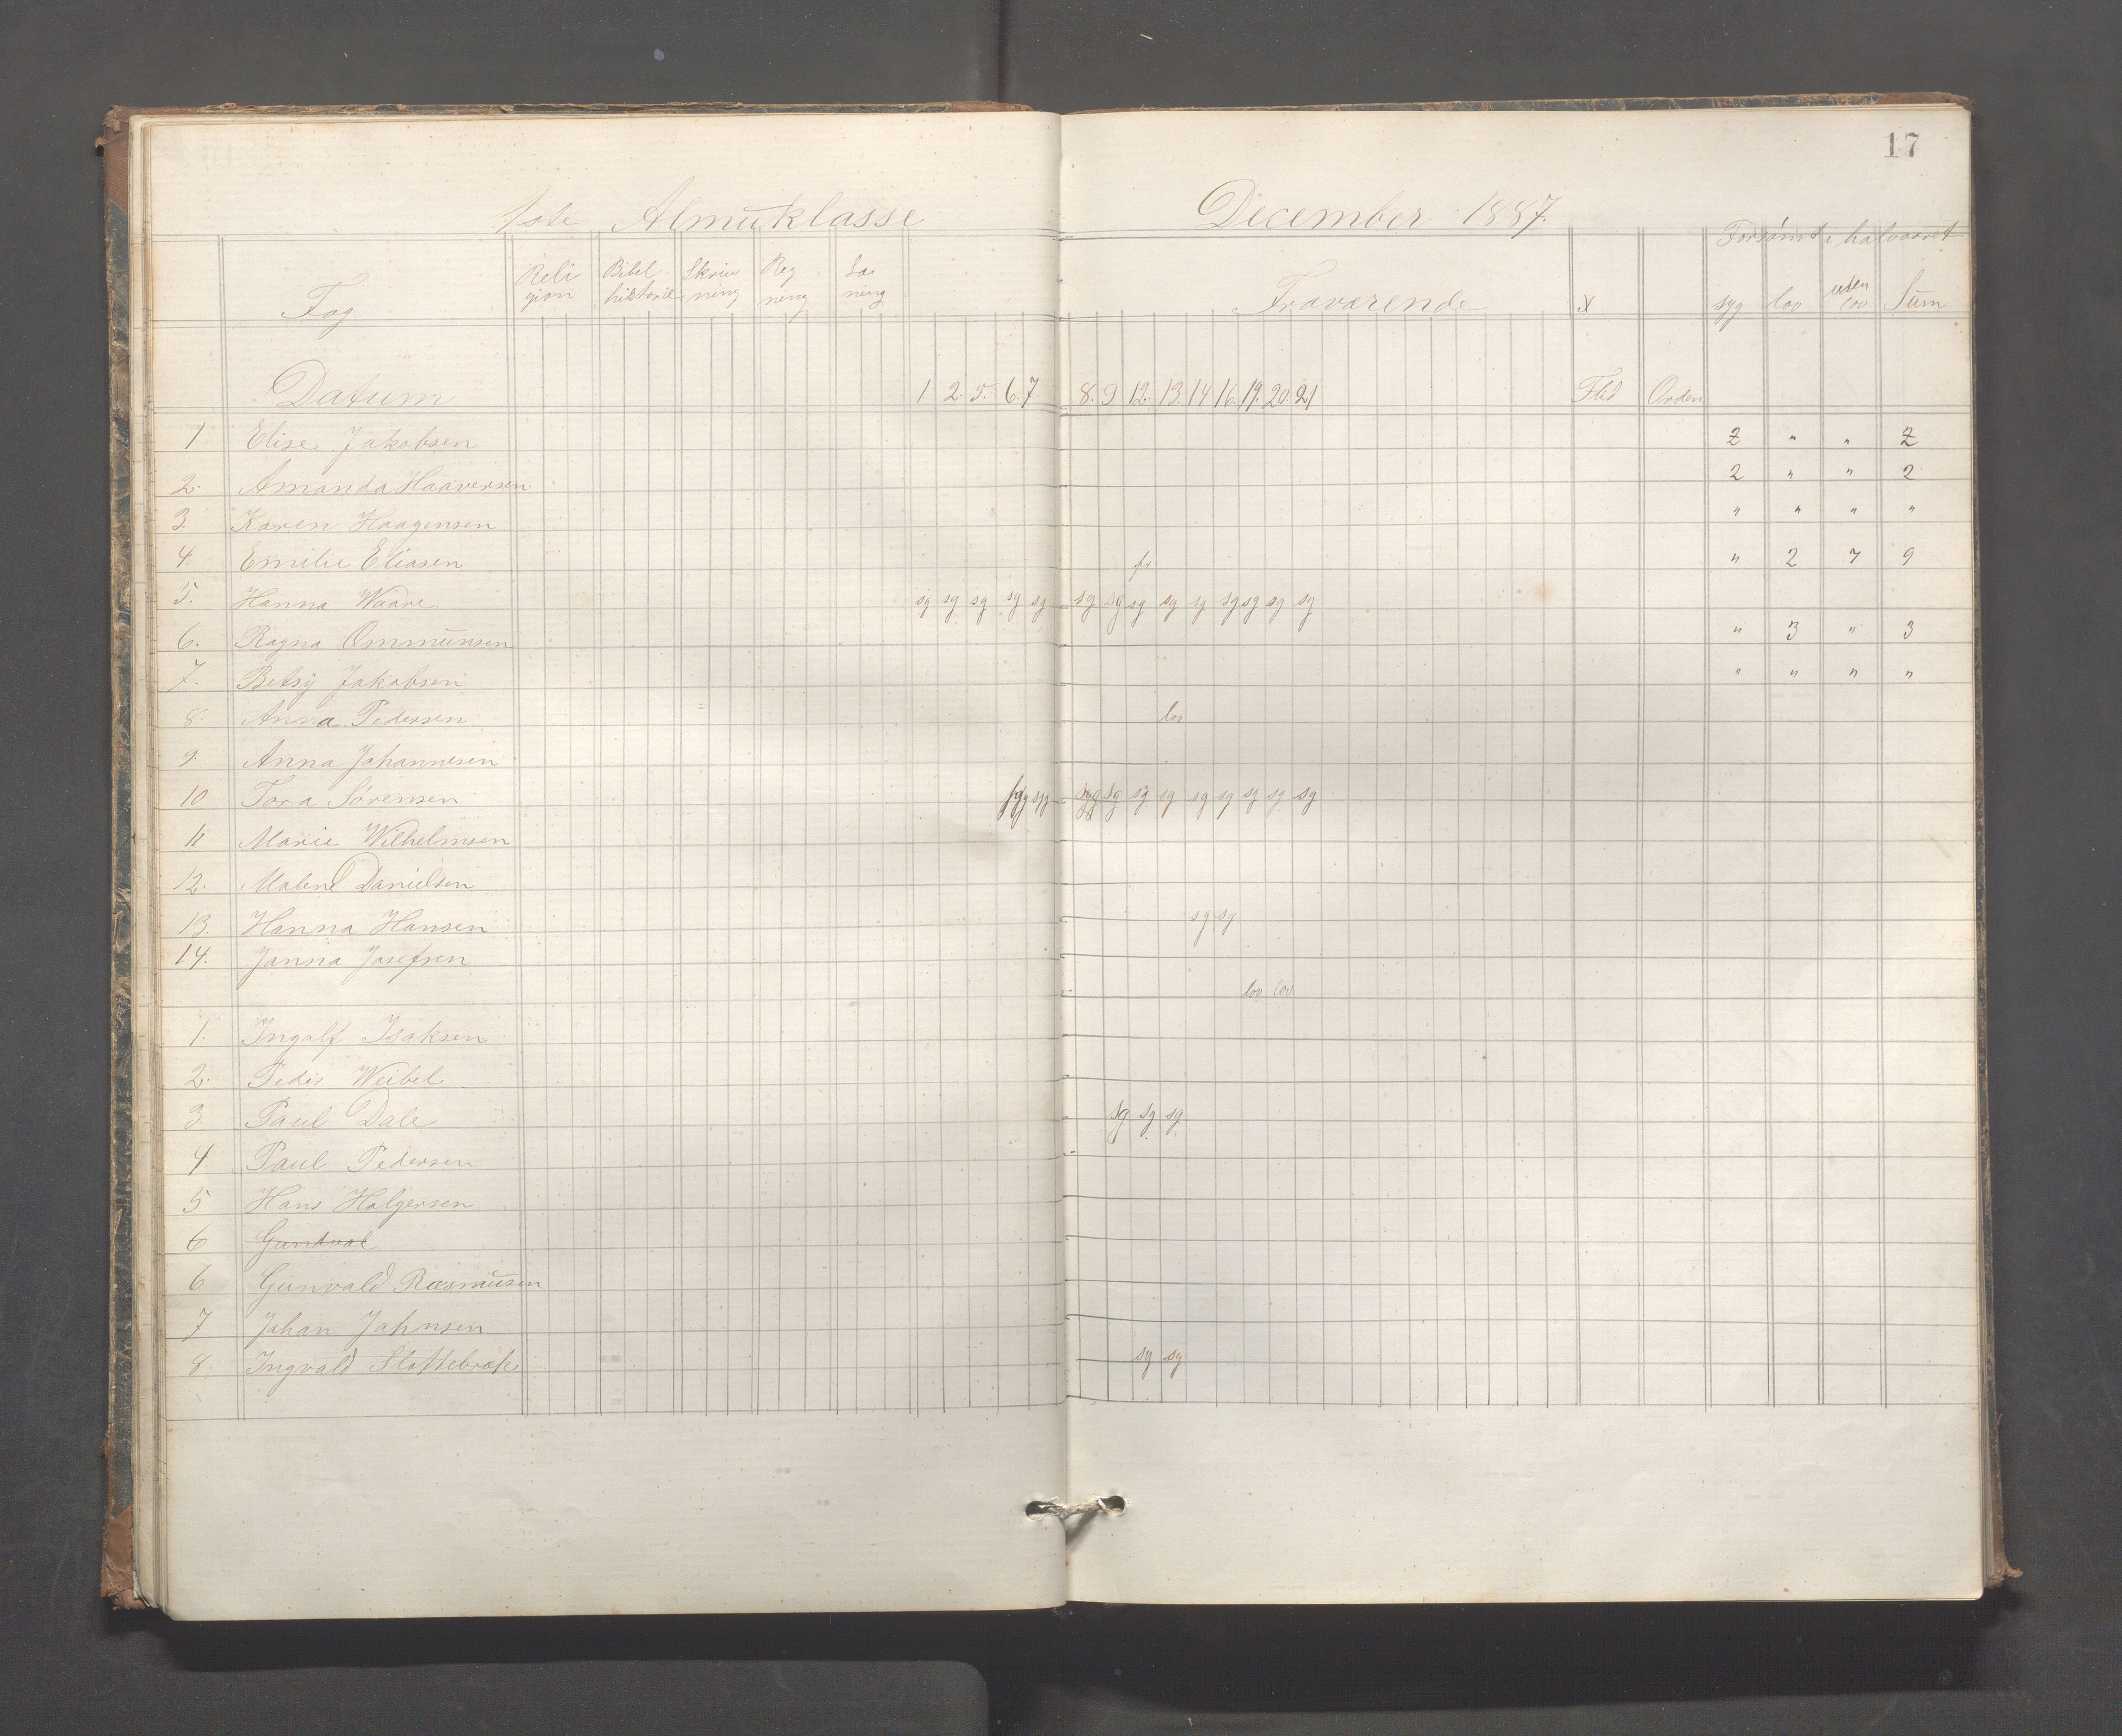 17
1ste Almuklasse December 1887.
Forsømt i halvaaret
Fag Religion Bibelhiktorie Skrivning Regning Fraværende x syg lov uden lov Sum
Datum 1 2. 5. 6. 7. 8. 9 12. 13. 14 16. 19. 20. 21 Flid Orden
1 Elise Jakobsen 2 " " 2
2. Amanda Haaversen 2 " " 2
3. Karen Haagensen " " " "
4. Emilie Eliasen " 2 7 9
5. Hanna Waare sg sg sg sg sg sg sg sg sg sg sg sg sg sg
6. Ragna Ommunsen " 3 " 3
7. Betsy Jakobsen " " " "
8. Anna Pedersen lov
9. Anna Johannesen
10 Tora Sørensen syg syg sg sg sg sg sg sg sg sg
11 Marie Wilhelmsen
12. Malene Danielsen
13. Hanna Hansen sg sg
14. Janna Josefsen
lov lov
1. Ingolf Isaksen
2. Peder Weibel
3. Paul Dale sg sg sg
4 Paul Pedersen
5 Hans Holgersen
6 Gundval
6 Gunvald Rasmusen
7 Johan Johnsen
8. Ingvald Slottebrak sg sg